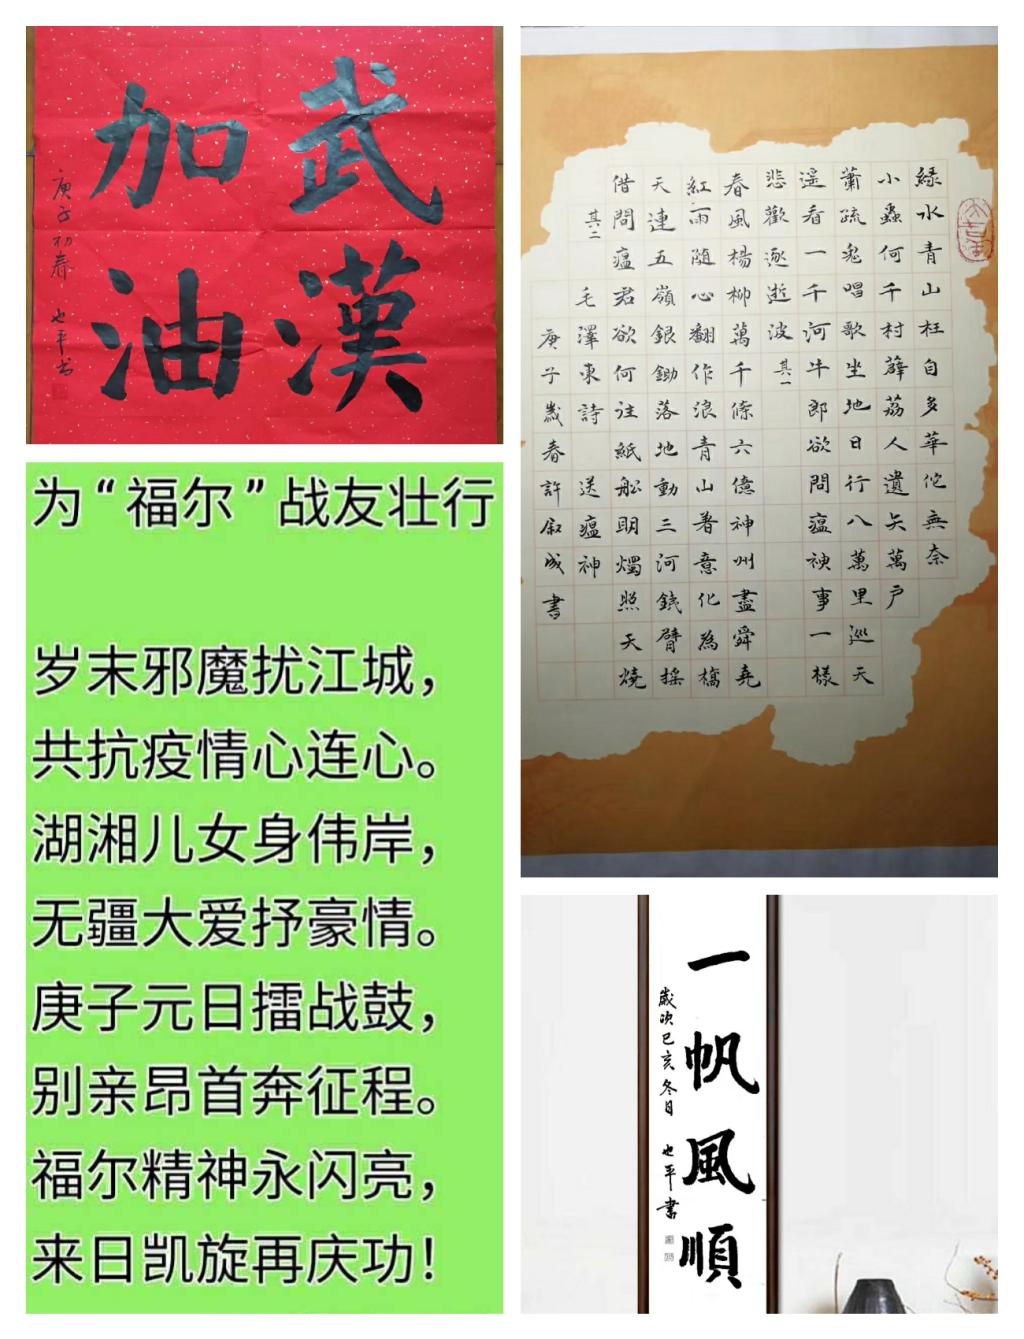 武漢
加油
庚子初春 也平书
为“福尔”战友壮行
岁末邪魔扰江城，
共抗疫情心连心。
湖湘儿女身伟岸，
无疆大爱抒豪情。
庚子元日擂战鼓，
别亲昂首奔征程。
福尔精神永闪亮，
来日凯旋再庆功！
綠水青山枉自多華佗無奈
小蟲何千村薜荔人遺矢萬戶
蕭疏鬼唱歌坐地日行八萬里巡天
遥看一千河牛郎欲問瘟神事一樣
悲歡逐逝波 其一
春風楊柳萬千條六億神州盡舜堯
紅雨隨心翻作浪青山著意化為橋
天連五嶺銀鋤落地動三河鐵臂摇
借問瘟君欲何往紙船明燭照天燒
其二 毛澤東詩 送瘟神
庚子歲春許叙成書
一帆風順
歲次己亥冬月 也平書